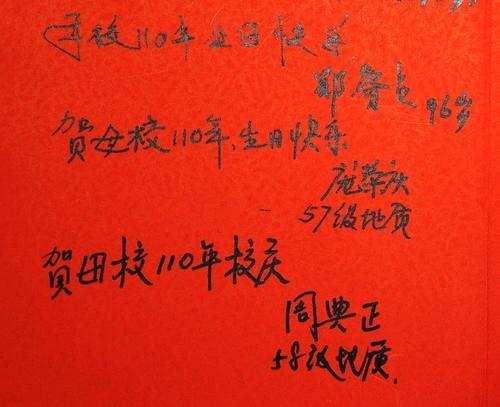 母校110年生日快乐
96岁
賀母校110年生日快乐
庞荣庆
57级地质
賀母校110年校庆
周典正
58级地质.